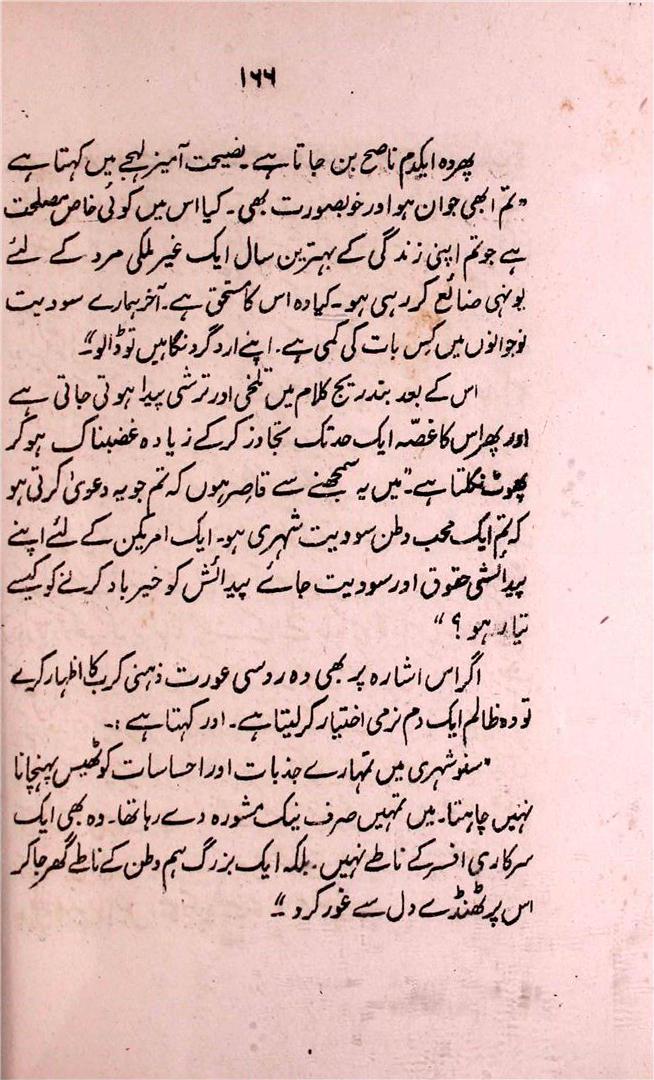 ۱۶۶
پھر وہ ایکدم ناصح بن جاتا ہے۔ نصیحت آمیز لہجے میں کہتا ہے
”تم ابھی جوان ہو اور خوبصورت بھی۔ کیا اس میں کوئی خاص مصلحت
ہے جو تم اپنی زندگی کے بہترین سال ایک غیر ملکی مرد کے لئے
یونہی ضائع کر رہی ہو۔ کیا وہ اس کا مستحق ہے۔ آخر ہمارے سوویت
نوجوانوں میں کس بات کی کمی ہے۔ اپنے ارد گرد نگاہیں تو ڈالو۔“
اس کے بعد بتدریج کلام میں تلخی اور ترشی پیدا ہوتی جاتی ہے
اور پھر اس کا غصّہ ایک حد تک تجاوز کر کے زیادہ غضبناک ہو کر
پھوٹ نکلتا ہے۔ ”میں یہ سمجھنے سے قاصر ہوں کہ تم جو یہ دعویٰ کرتی ہو
کہ تم ایک محب وطن سوویت شہری ہو۔ ایک امریکن کے لئے اپنے
پیدائشی حقوق اور سوویت جائے پیدائش کو خیر باد کرنے کو کیسے
تیار ہو ؟“
اگر اس اشارہ پر بھی وہ روسی عورت ذہنی کرب کا اظہار کرے
تو وہ ظالم ایک دم نرمی اختیار کر لیتا ہے۔ اور کہتا ہے :۔
”سنو شہری میں تمہارے جذبات اور احساسات کو ٹھیس پہنچانا
نہیں چاہتا۔ میں تمہیں صرف نیک مشورہ دے رہا تھا۔ وہ بھی ایک
سرکاری افسر کے ناطے نہیں۔ بلکہ ایک بزرگ ہم وطن کے ناطے گھر جا کر
اس پر ٹھنڈے دل سے غور کرو۔“